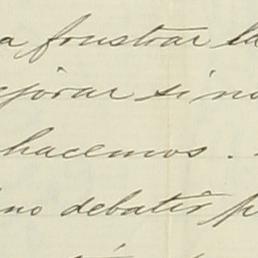 a frustrar la
ejorar si no
hacemos.
no debatir p